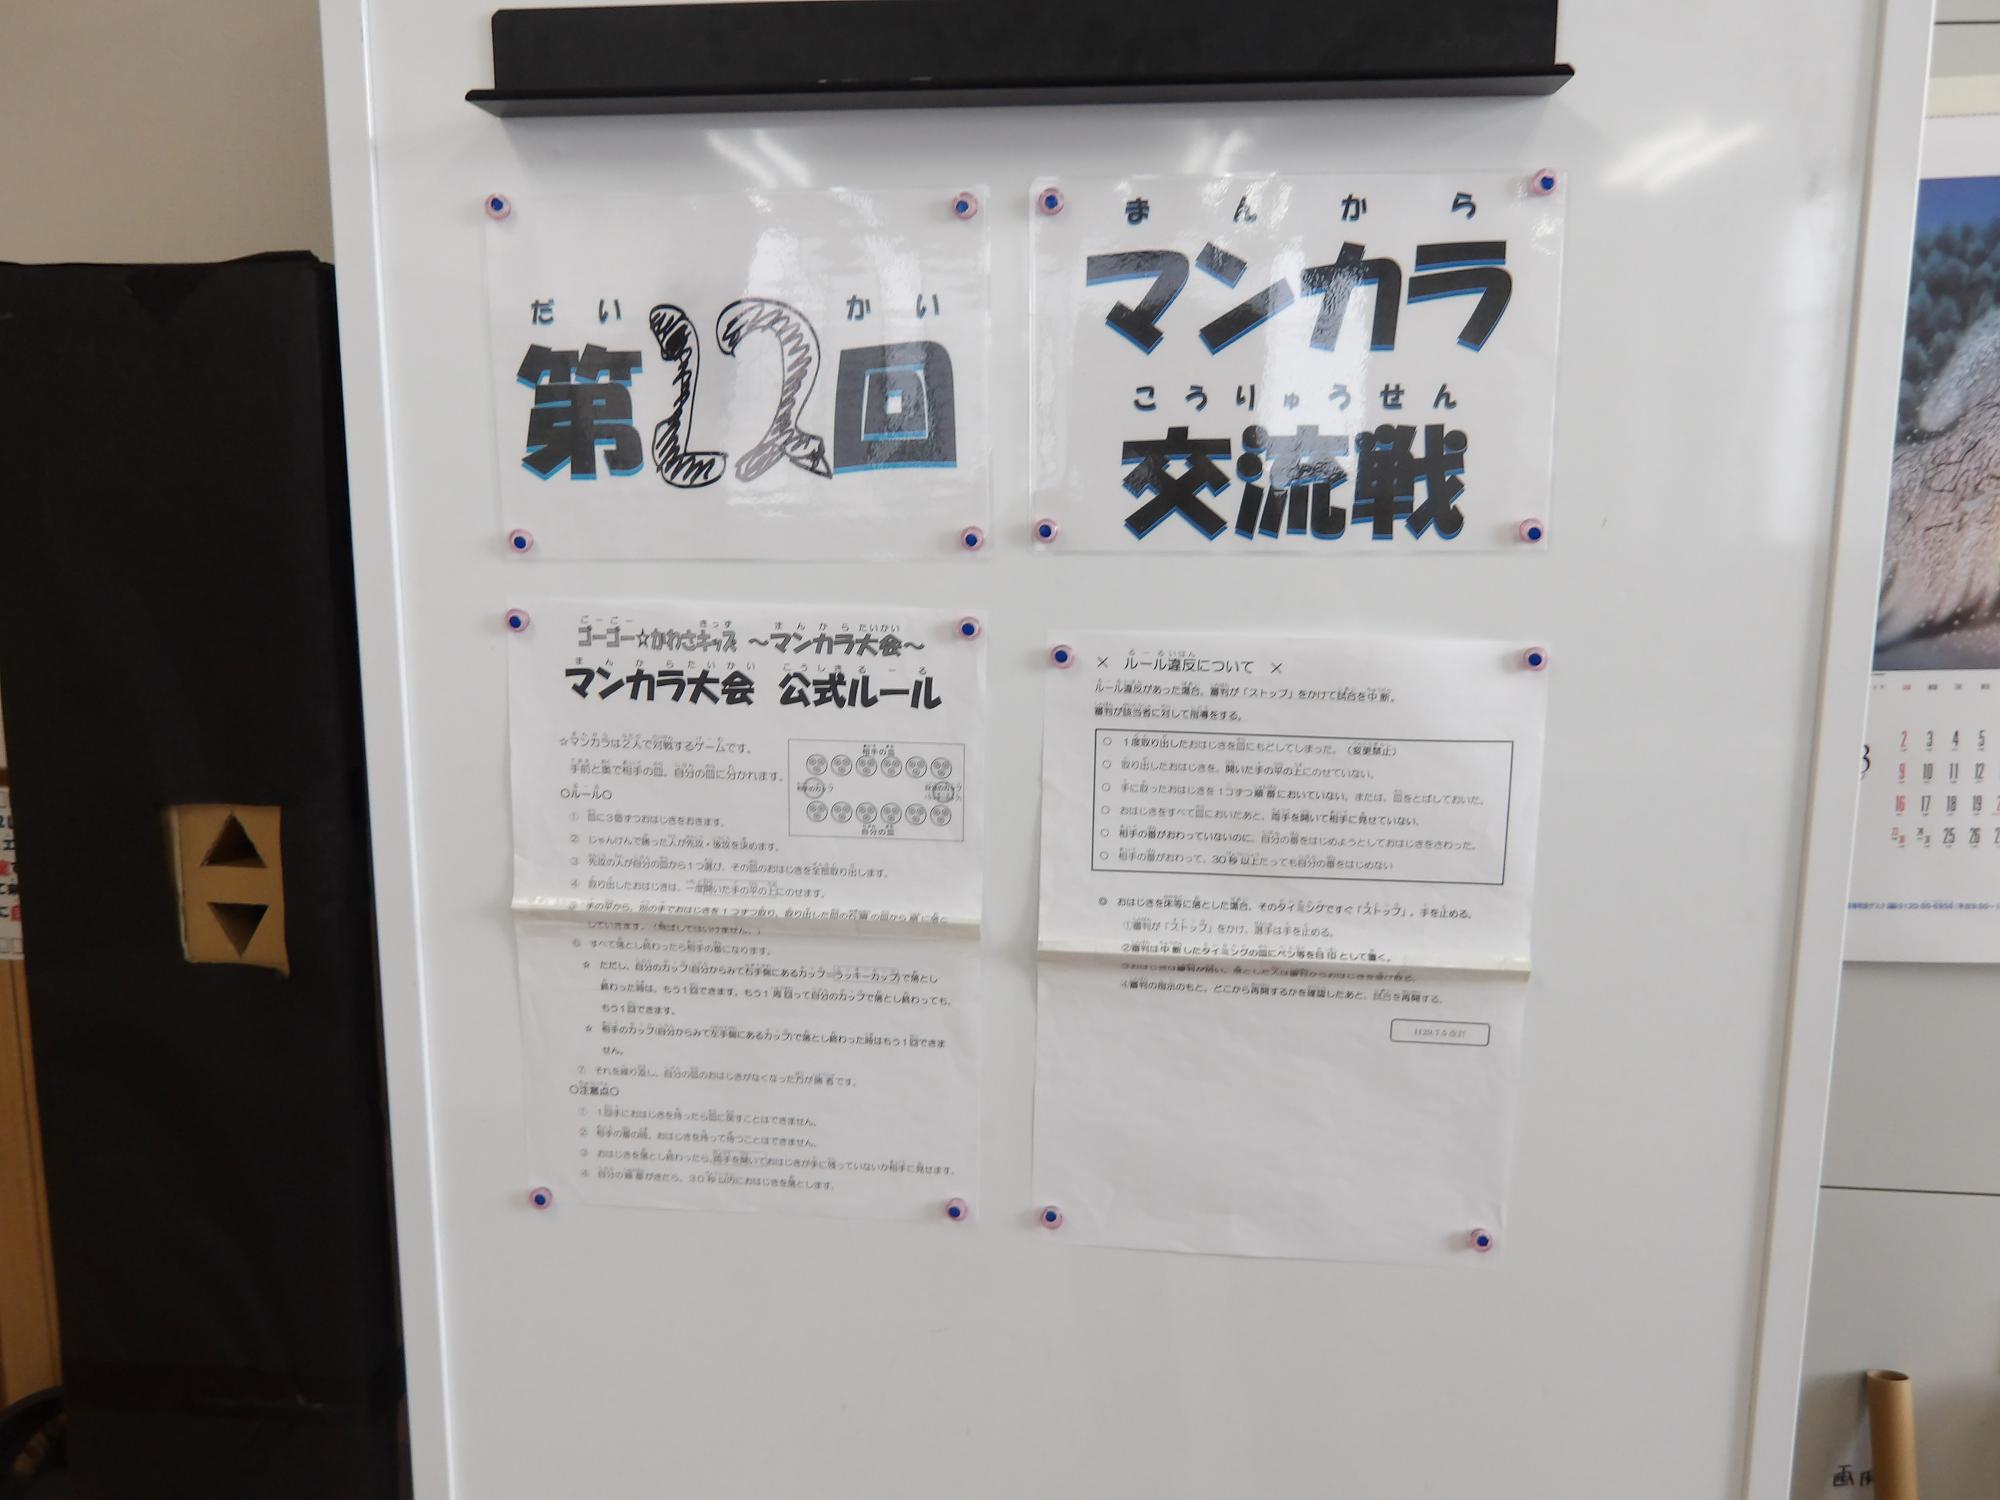 だい かい
第12回
まんから
マンカラ
こうりゅうせん
交流戦
ごーごー きっず まんからたいかい
ゴーゴー☆かわさキッズ ～マンカラ大会～
まんからたいかい こうしきるーる
マンカラ大会 公式ルール
☆マンカラは2人で対戦するゲームです。
手前と奥で相手の皿、自分の皿に分かれます。
相手の皿
自分の皿
○ルール○
① 皿に3個ずつおはじきをおきます。
② じゃんけんで勝った人が先攻・後攻を決めます。
③ 先攻の人が自分の皿から1つ選び、その皿のおはじきを全部取り出します。
④ 取り出したおはじきは、一度開いた手の平の上にのせます。
⑤ 手の平から、別の手でおはじきを1つずつ取り、取り出した皿の右隣の皿から順に落と
していきます。（飛ばしてはいけません。）
⑥ すべて落とし終わったら相手の番になります。
☆ ただし、自分のカップ(自分からみて右手側にあるカップ=ラッキーカップ)で落とし
終わった時は、もう1回できます。もう1周回って自分のカップで落とし終わっても、
もう1回できます。
☆ 相手のカップ(自分からみて左手側にあるカップ)で落とし終わった時はもう1回できま
せん。
⑦ それを繰り返し、自分の皿のおはじきがなくなった方が勝者です。
○注意点○
① 1回手におはじきを持ったら皿に戻すことはできません。
② 相手の番の時、おはじきを持って待つことはできません。
③ おはじきを落とし終わったら、両手を開いておはじきが手に残っていないか相手に見せます。
④ 自分の順番がきたら、30秒以内におはじきを落とします。
るーるいはん
× ルール違反について ×
ルール違反があった場合、審判が「ストップ」をかけて試合を中断。
審判が該当者に対して指導をする。
○ 1度取り出したおはじきを皿にもどしてしまった。（変更禁止）
○ 取り出したおはじきを、開いた手の平の上にのせていない。
○ 手に取ったおはじきを1つずつ順番においていない。または、皿をとばしておいた。
○ おはじきをすべて皿においたあと、両手を開いて相手に見せていない。
○ 相手の番がおわっていないのに、自分の番をはじめようとしておはじきをさわった。
○ 相手の番がおわって、30秒以上たっても自分の番をはじめない
◎ おはじきを床等に落とした場合、そのタイミングですぐ「ストップ」。手を止める。
①審判が「ストップ」をかけ、選手は手を止める。
②審判は中断したタイミングの皿にペン等を目印として置く。
③おはじきは審判が拾い、落とした人は審判からおはじきを受け取る。
④審判の指示のもと、どこから再開するかを確認したあと、試合を再開する。
2 3 4 5
9 10 11 12
16 17 18 19
25 26